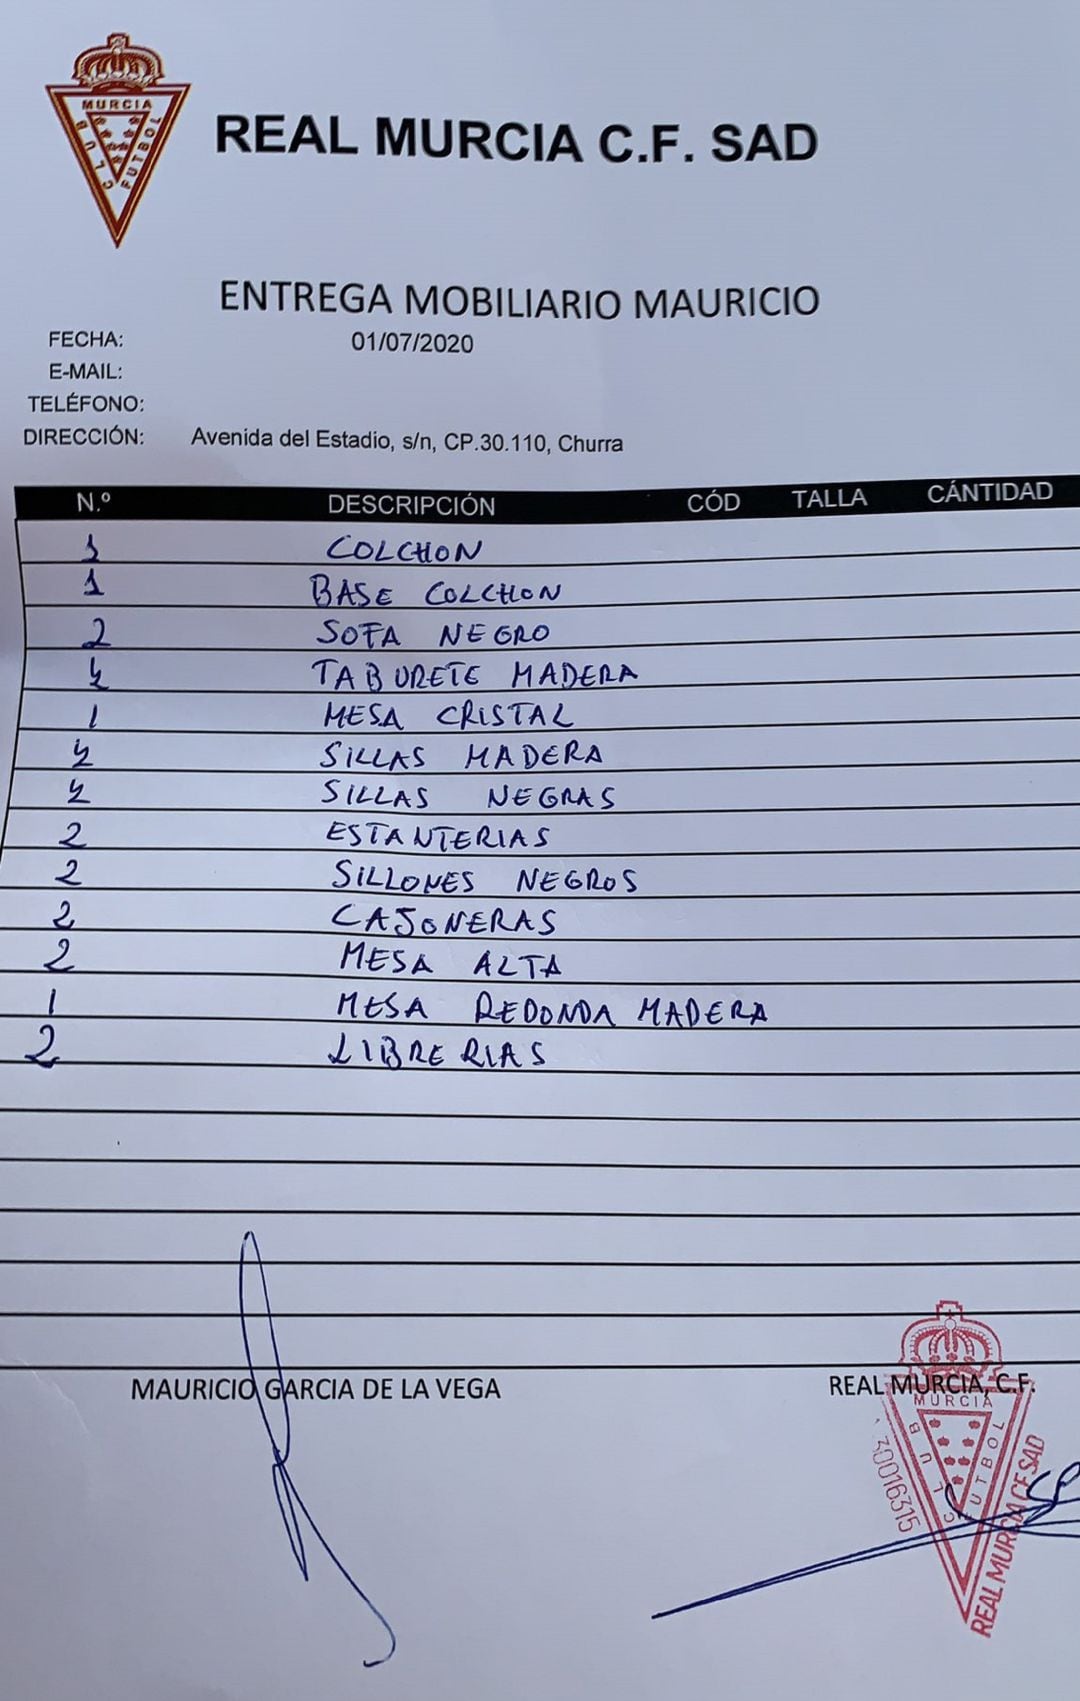 MURCIA
CLUB
FUTBOL
REAL MURCIA C.F. SAD
ENTREGA MOBILIARIO MAURICIO
FECHA: 01/07/2020
E-MAIL:
TELÉFONO:
DIRECCIÓN: Avenida del Estadio, s/n, CP.30.110, Churra
N.º DESCRIPCIÓN CÓD TALLA CÁNTIDAD
1 COLCHON
1 BASE COLCHON
2 SOFA NEGRO
4 TABURETE MADERA
1 MESA CRISTAL
4 SILLAS MADERA
4 SILLAS NEGRAS
2 ESTANTERIAS
2 SILLONES NEGROS
2 CAJONERAS
2 MESA ALTA
1 MESA REDONDA MADERA
2 LIBRERIAS
MAURICIO GARCIA DE LA VEGA REAL MURCIA, C.F.
MURCIA
CLUB
FUTBOL
30016315
REAL MURCIA CF SAD